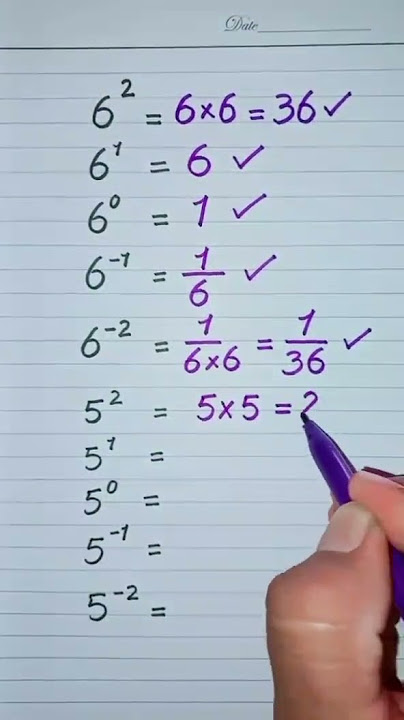 Date
6² = 6×6 = 36 ✓
6¹ = 6 ✓
6⁰ = 1 ✓
6⁻¹ = 1/6 ✓
6⁻² = 1/6×6 = 1/36 ✓
5² = 5×5 = 2
5¹ =
5⁰ =
5⁻¹ =
5⁻² =